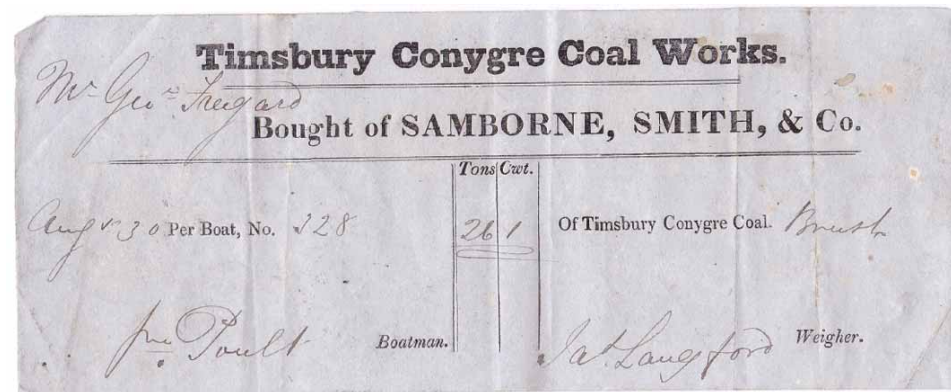 Timsbury Conygre Coal Works.
Mr. Geo.
Bought of SAMBORNE, SMITH, & Co.
Tons Cwt.
Augt 30 Per Boat, No. 228 26 1 Of Timsbury Conygre Coal.
Boatman. Jas. Langford Weigher.